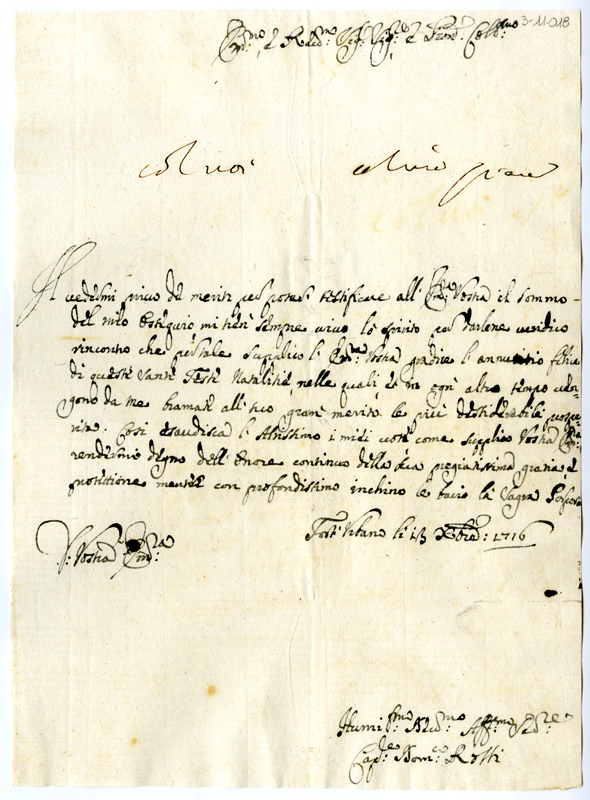 3-11-018
Em:mo e Reud:mo Sig: Sig:e e Pron: Coll:mo
Il uedermi priuo di meriti per poter testificare all' Em:za Vostra il sommo
del mio ossequio mi tien sempre uiuo lo spirito per darlene ueridico
rincontro che per tale supplico l' Em:za Vostra gradire l' annuntio felice
di queste Sante Feste Natalitie, nelle quali et in ogni altro tempo uen-
gono da me bramate all' suo gran merito le più desiderabili prospe-
rità. Così esaudisca l' Altissimo i miei uoti come supplico Vostra Em:za
rendermi degno dell' Onore continuo della sua pregiatissima gratia, e
protetione mentre con profondissimo inchino le bacio la Sagra Porpora
Di Vostra Em:za
Forte Urbano li 13 Xbre: 1716
Humi:smo Deuo:mo Aff:mo Ser:re
Cap:e Dom:co Rossi